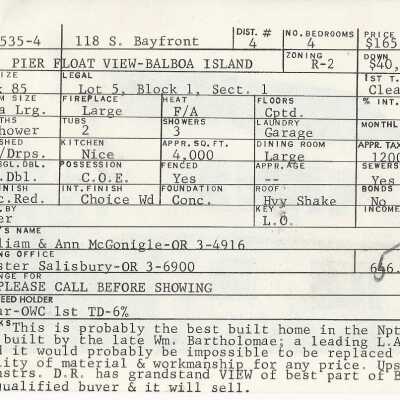 535-4 118 S. Bayfront DIST. # 4 NO. BEDROOMS 4 PRICE $165
PIER FLOAT VIEW-BALBOA ISLAND ZONING R-2 DOWN $40,
SIZE 85 LEGAL Lot 5, Block 1, Sect. 1 1ST T. Clea
SIZE Lrg. FIREPLACE Large HEAT F/A FLOORS Cptd. % INT.
THS hower TUBS 2 SHOWERS 3 LAUNDRY Garage MONTHL
SHED /Drps. KITCHEN Nice APPR. SQ. FT. 4,000 DINING ROOM Large APPR. TAX 1200
GL. DBL. .Dbl. POSSESSION C.O.E. FENCED Yes APPR. AGE -- SEWERS Yes
INISH c.Red. INT. FINISH Choice Wd FOUNDATION Conc. ROOF Hvy Shake BONDS No
. BY er KEY L.O. INCOME
'S NAME
liam & Ann McGonigle-OR 3-4916
NG OFFICE
ster Salisbury-OR 3-6900
NGE FOR
PLEASE CALL BEFORE SHOWING
EED HOLDER
ar-OWC 1st TD-6%
KS This is probably the best built home in the Npt
built by the late Wm. Bartholomae; a leading L.A
d it would probably be impossible to be replaced
lity of material & workmanship for any price. Ups
nstrs. D.R. has grandstand VIEW of best part of B
qualified buyer & it will sell.